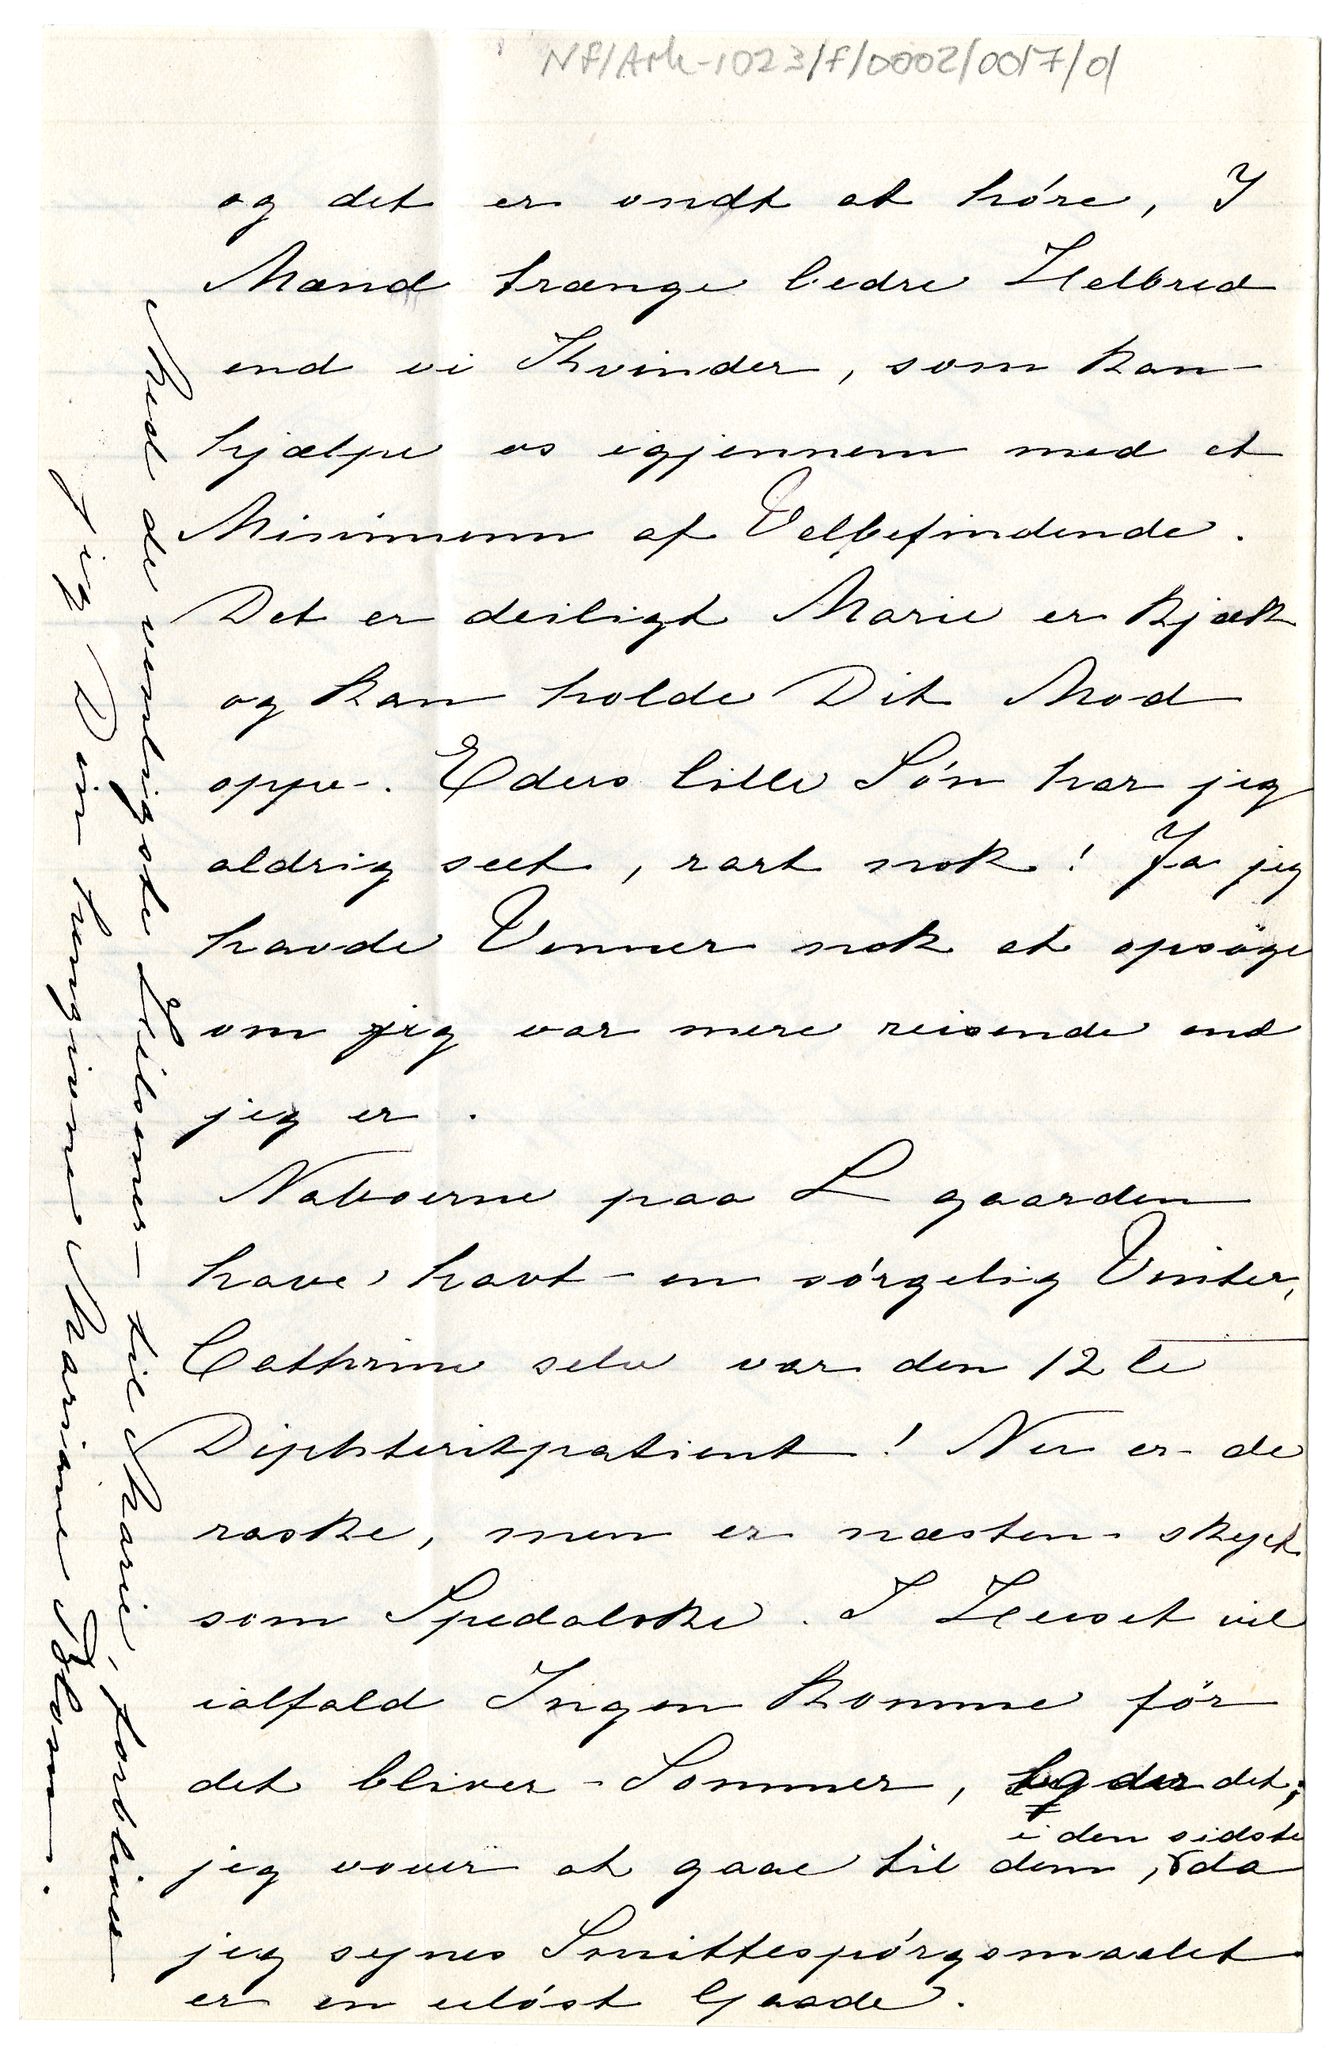 NF/Ark-1023/F/0002/0017/01
og det er ondt at høre, I
Mænd trænge bedre Helbred
end vi Kvinder, som kan
hjælpe os igjennem med et
Minimum af Velbefindende.
Det er deiligt Marie er kjæk
og kan holde Dit Mod
oppe. Eders lille Søn har jeg
aldrig seet, rart nok! Ja jeg
havde Venner nok at opsøge
om jeg var mere reisende end
jeg er.
Naboerne paa L gaarden
have havt en sørgelig Vinter,
Cathrine selv var den 12te
Diphteritpatient! Nu er de
raske, men er næsten skyet
som Spedalske. I Huset vil
ialfald Ingen komme før
det bliver Sommer, det,
i den sidste
jeg vover at gaae til dem, da
jeg synes Smittespørgsmaalet
er en uløst Gaade.
Med de venligste Hilsener til Marie, forbliver
jeg Din hengivne Mariane Blom.